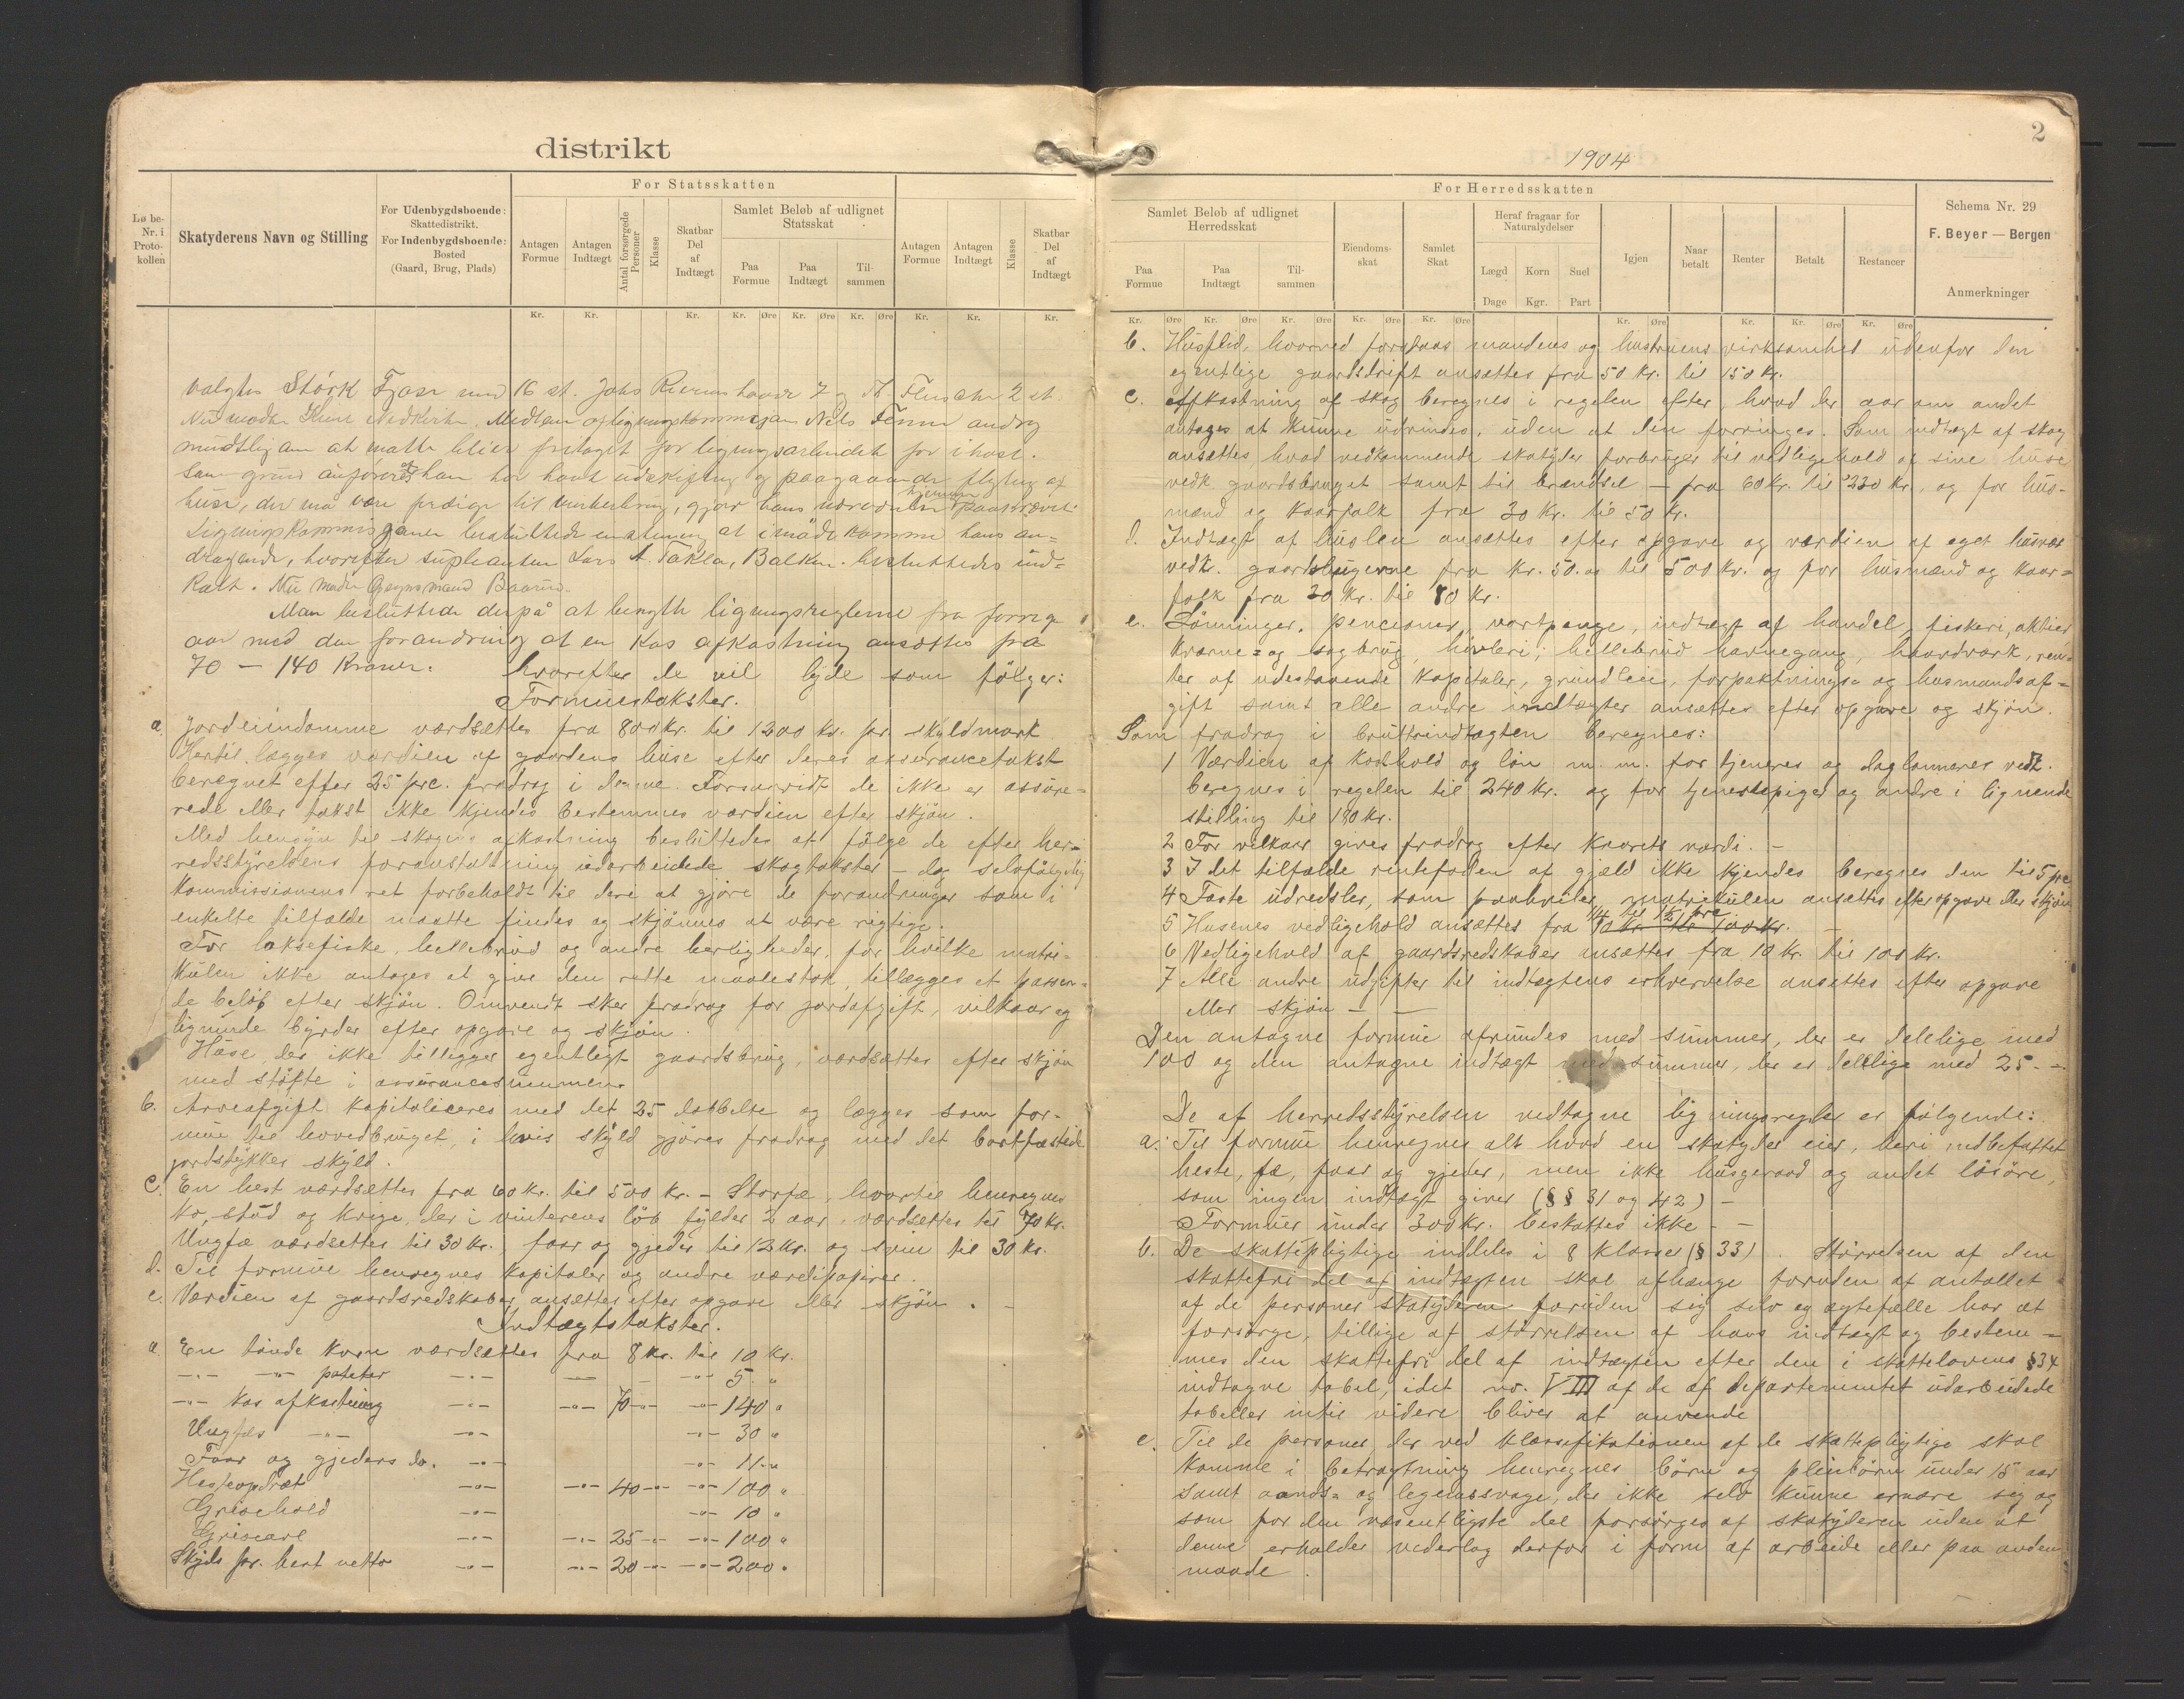 distrikt
Lø be-
Nr. i
Proto-
kollen
Skatyderens Navn og Stilling
For Udenbygdsboende:
Skattedistrikt.
For Indenbygdsboende:
Bosted
(Gaard, Brug, Plads)
For Statsskatten
Antagen
Formue
Antagen
Indtægt
Antal forsørgede
Personer
Klasse
Skatbar
Del
af
Indtægt
Samlet Beløb af udlignet
Statsskat
Paa
Formue
Paa
Indtægt
Til-
sammen
Antagen
Formue
Antagen
Indtægt
Klasse
Skatbar
Del
af
Indtægt
Kr. Kr. Kr. Kr. Øre Kr. Øre Kr. Øre Kr. Kr. Kr.
valgtes Störk Fjose med 16 st. Johs 7 og 2 st
Nils Fenne androg
mundtlig om at maatte blive fritaget for ligningsarbeidet for ihøst.
Som grund anfører at han har havt udskiftning og paagaaende flytning af
huse, der
Ligningskommissionen besluttede at imödekomme hans an-
dragende, hvorefter suplianten Lars A. Takla, Balken. besluttedes ind-
kaldt.
Man besluttede derpå at benytte ligningsreglerne fra forrige
aar med den forandring at en kos afkastning ansættes fra
70 – 140 Kroner. hvorefter de vil lyde som fölger:
Formuestakster.
a. Jordeiendomme værdsættes fra 800 kr. til 1200 kr. pr. skyldmark
Hertil lægges værdien af gaardens huse efter deres assurancetakst
beregnet efter 25 prc. fradrag i denne. Forsaavidt de ikke er assure-
rede eller takst ikke kjendes bestemmes værdien efter skjön.
Med hensyn til skogens afkastning besluttedes at fölge de efter her-
redsstyrelsens foranstaltning udarbeidede skogtakster – dog selvfölgelig
kommissionens ret forbeholdt til deri at gjöre de forandringer som i
enkelte tilfælde maatte findes og skjönnes at være rigtige.
For laksefiske, hellebrud og andre herligheder, for hvilke matri-
kulen ikke antages at give den rette maalestok, tillægges et passen-
de belöb efter skjön. Omvendt sker fradrag for jordafgift, vilkaar og
lignende byrder efter opgave og skjön.
Huse, der ikke tilligger egentligt gaardsbrug, værdsættes efter skjön
med stötte i assurancesummen.
b. Arveafgift kapitaliceres med det 25 dobbelte og lægges som for-
mue til hovedbruget, i hvis skyld gjöres fradrag med det bortfæstede
jordstykkes skyld.
c. En hest værdsættes fra 60 kr. til 500 kr. – Storfæ, hvortil henregnes
ko, stud og kvige, der i vinterens löb fylder 2 aar, værdsettes til 70 kr.
Ungfæ værdsettes til 30 kr., faar og gjeder til 12 kr. og svin til 30 kr.
d. Til formue henregnes kapitaler og andre værdipapirer.
e. Værdien af gaardsredskaber ansættes efter opgave eller skjön.
Indtægtstakster.
a. En tönde korn værdsættes fra 8 kr. til 10 kr.
–"– –"– poteter –"– — –"– 5 "
–"– kos afkastning –"– –"– 70 –"– –"– 140 "
Ungfæs –"– –"– –"– 30 "
Faar og gjeders do. –"– –"– 11 "
Hesteopdræt –"– –"– 40 –"– –"– 100 "
Grisehold –"– –"– 10 "
Griseavl –"– –"– 25 –"– –"– 100 "
Skyds pr. hest netto –"– –"– 20 –"– –"– 200 "
2
1904
For Herredsskatten
Samlet Beløb af udlignet
Herredsskat
Paa
Formue
Paa
Indtægt
Til-
sammen
Eiendoms-
skat
Samlet
Skat
Heraf fragaar for
Naturalydelser
Lægd
Dage
Korn
Kgr.
Suel
Part
Igjen
Naar
betalt
Renter
Betalt
Restancer
Schema Nr. 29
F. Beyer — Bergen
Anmerkninger
Kr. Øre Kr. Øre Kr. Øre Kr. Øre Kr. Øre Kr. Øre Kr. Kr. Øre Kr. Øre
b. Husflid, hvorved forstaas mandens og hustruens virksomhed udenfor den
egentlige gaardsdrift ansættes fra 50 kr. til 150 kr.
c. Afkastning af skog beregnes i regelen efter, hvad der aar om andet
antages at kunne udvindes, uden at den forringes. Som indtægt af skog
ansættes, hvad vedkommende skatyder forbruger til vedligehold af sine huse
vedk. gaardsbruget samt til brændsel – fra 60 kr. til 230 kr., og for hus-
mænd og kaarfolk fra 30 kr. til 50 kr.
d. Indtægt af husleie ansættes efter opgave og værdien af eget husvær
vedk. gaardbrugerne fra kr. 50.00 til 500 kr. og for husmænd og kaar-
folk fra 20 kr. til 80 kr.
e. Lönninger, pencioner, vartpenge, indtægt af handel, fiskeri, aktier
kværne- og sagbrug, hövleri, hellebrud havnegang, haandværk, ren-
ter af udestaaende kapitaler, grundleie, forpaktnings- og husmandsaf-
gift samt alle andre indtægter ansættes efter opgave og skjön.
Som fradrag i bruttoindtægten beregnes:
1 Værdien af kosthold og lön m.m. for tjenere og daglönnere vedk.
beregnes i regelen til 240 kr. og for tjenestepiger og andre i lignende
stilling til 180 kr.
2 For vilkaar gives fradrag efter kaarets værdi. –
3 I det tilfælde rentefoden af gjæld ikke kjendes beregnes den til 5 prc
4 Faste udredsler, som paahviler matrikulen ansættes efter opgave eller skjön
1/4 til 1 1/2 prc
5 Husenes vedligehold ansættes fra 10 kr. til 100 kr.
6 Vedligehold af gaardsredskaber ansættes fra 10 kr. til 100 kr.
7 Alle andre udgifter til indtægtens erhvervelse ansettes efter opgave
eller skjön – —
Den antagne formue afrundes med summer, der er delelige med
100 og den antagne indtægt med summer, der er delelige med 25. –
De af herredsstyrelsen vedtagne ligningsregler er fölgende:
a. Til formue henregnes alt hvad en skatyder eier, heri indbefattet
heste, fæ, faar og gjeder, men ikke husgeraad og andet lösöre,
som ingen indtægt giver (§ § 31 og 42) –
Formuer under 300 kr. beskattes ikke – –
b. De skattepligtige inddeles i 8 klasser (§ 33). Störrelsen af den
skattefri del af indtægten skal afhænge foruden af antallet
af de personer skatyderen foruden sig selv og ægtefælle har at
forsörge, tillige af störrelsen af hans indtægt og bestem-
mes den skattefri del af indtægten efter den i skattelovens §34
indtagne tabel, idet no. VIII af de af departementet udarbeidede
tabeller intil videre bliver at anvende
c. Til de personer, der ved klassifikationen af de skattepligtige skal
komme i betragtning henregnes börn og pleiebörn under 15 aar
samt aands- og legemssvage, der ikke selv kunne ernære sig og
som for den væsentligste del forsörges af skatyderen uden at
denne erholder vederlag derfor i form af arbeide eller paa anden
maade.